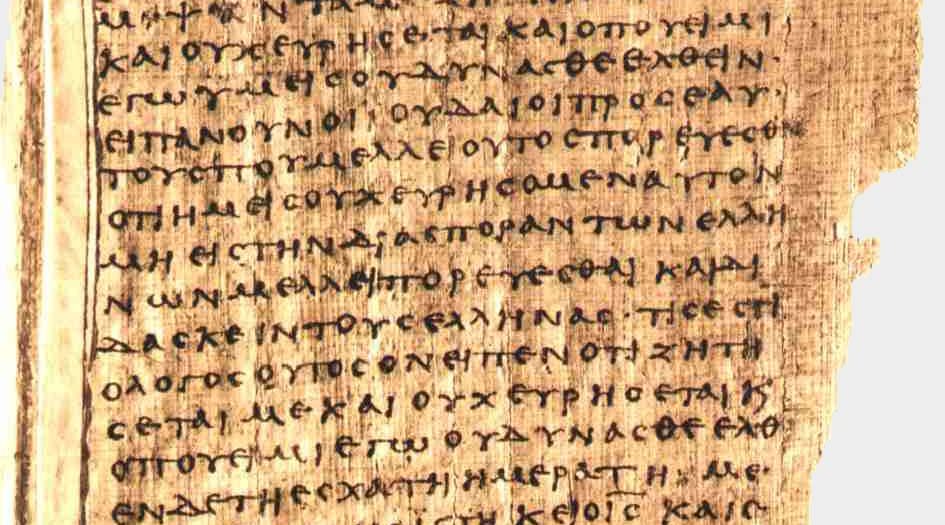 ΚΑΙΟΥΧΕΥΡΗϹΕΤΑΙΚΑΙΟΠΟΥΕΙΜΙ
ΕΓΩΥΜΕΙϹΟΥΔΥΝΑϹΘΕΕΛΘΕΙΝ·
ΕΙΠΑΝΟΥΝΟΙΙΟΥΔΑΙΟΙΠΡΟϹΕΑΥ·
ΤΟΥϹΠΟΥΜΕΛΛΕΙΟΥΤΟϹΠΟΡΕΥΕϹΘ
ΟΤΙΗΜΕΙϹΟΥΧΕΥΡΗϹΟΜΕΝΑΥΤΟΝ
ΜΗΕΙϹΤΗΝΔΙΑϹΠΟΡΑΝΤΩΝΕΛΛΗ
ΝΩΝΜΕΛΛΕΙΠΟΡΕΥΕϹΘΑΙΚΑΙΔΙ
ΔΑϹΚΕΙΝΤΟΥϹΕΛΛΗΝΑϹ·ΤΙϹΕϹΤΙ
ΟΛΟΓΟϹΟΥΤΟϹΟΝΕΙΠΕΝΟΤΙΖΗΤΗ
ϹΕΤΑΙΜΕΚΑΙΟΥΧΕΥΡΗϹΕΤΑΙΚ
ΟΠΟΥΕΙΜΙΕΓΩΟΥΔΥΝΑϹΘΕΕΛΘ
ΕΝΔΕΤΗΕϹΧΑΤΗΗΜΕΡΑΤΗΜΕ·
ΙϹΤΗΚΕΙΟΙϹΚΑΙ